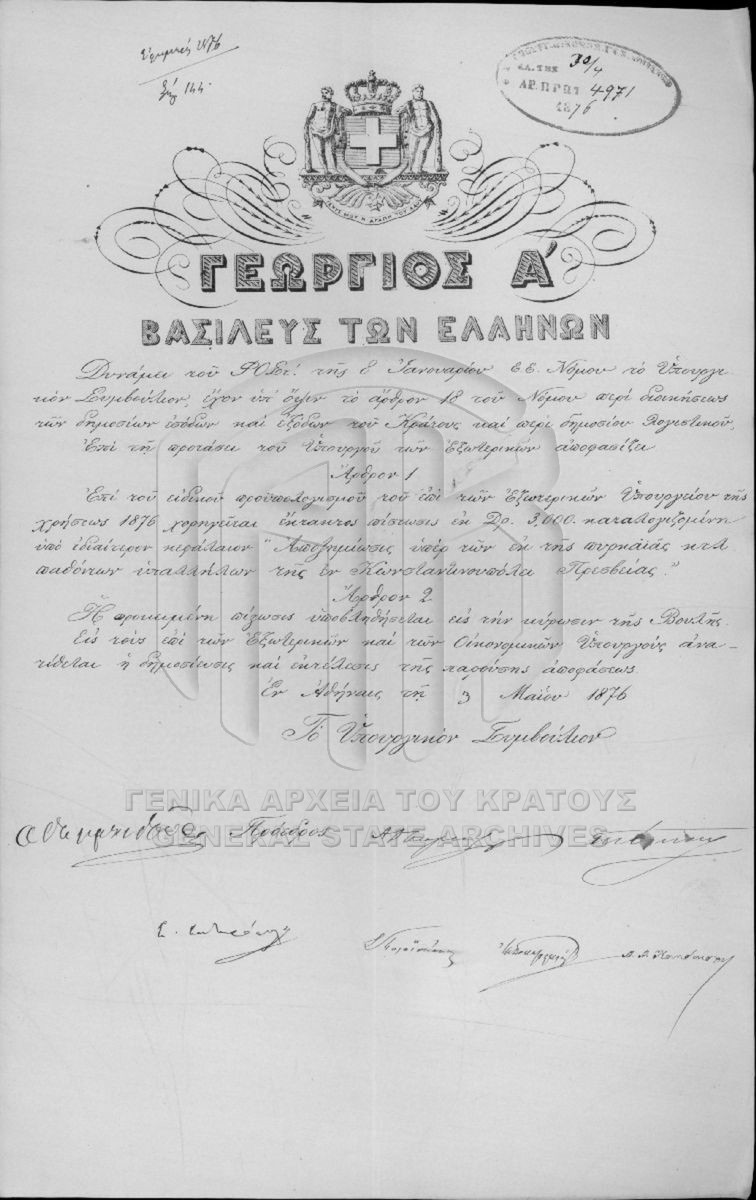 2876
144
30/4
ΑΡ. ΠΡΩΤ 4971
1876
ΙΣΧΥΣ ΜΟΥ Η ΑΓΑΠΗ ΤΟΥ ΛΑΟΥ
ΓΕΩΡΓΙΟΣ Α΄
ΒΑΣΙΛΕΥΣ ΤΩΝ ΕΛΛΗΝΩΝ
Δυνάμει του ΦΟΣτ΄. της 8 Ιανουαρίου ε.ε. Νόμου το Υπουργι-
κόν Συμβούλιον, έχον υπ' όψιν το άρθρον 18 του Νόμου περί διοικήσεως
των δημοσίων εσόδων και εξόδων του Κράτους και περί δημοσίου Λογιστικού,
Επί τη προτάσει του Υπουργού των Εξωτερικών αποφασίζει
Άρθρον 1
Επί του ειδικού προϋπολογισμού του επί των Εξωτερικών Υπουργείου της
χρήσεως 1876 χορηγείται έκτακτος πίστωσις εκ Δρ. 3,000. καταλογιζομένη
υπό ιδιαίτερον κεφάλαιον "Αποζημίωσις υπέρ των εκ της πυρκαϊάς κτλ
παθόντων υπαλλήλων της εν Κωνσταντινουπόλει Πρεσβείας."
Άρθρον 2
Η προκειμένη πίστωσις υποβληθήσεται εις την κύρωσιν της Βουλής.
Εις τους επί των Εξωτερικών και των Οικονομικών Υπουργούς ανα-
τίθεται η δημοσίευσις και εκτέλεσις της παρούσης αποφάσεως.
Εν Αθήναις τη 3 Μαΐου 1876
Το Υπουργικόν Συμβούλιον
ΓΕΝΙΚΑ ΑΡΧΕΙΑ ΤΟΥ ΚΡΑΤΟΥΣ
Πρόεδρος
GENERAL STATE ARCHIVES